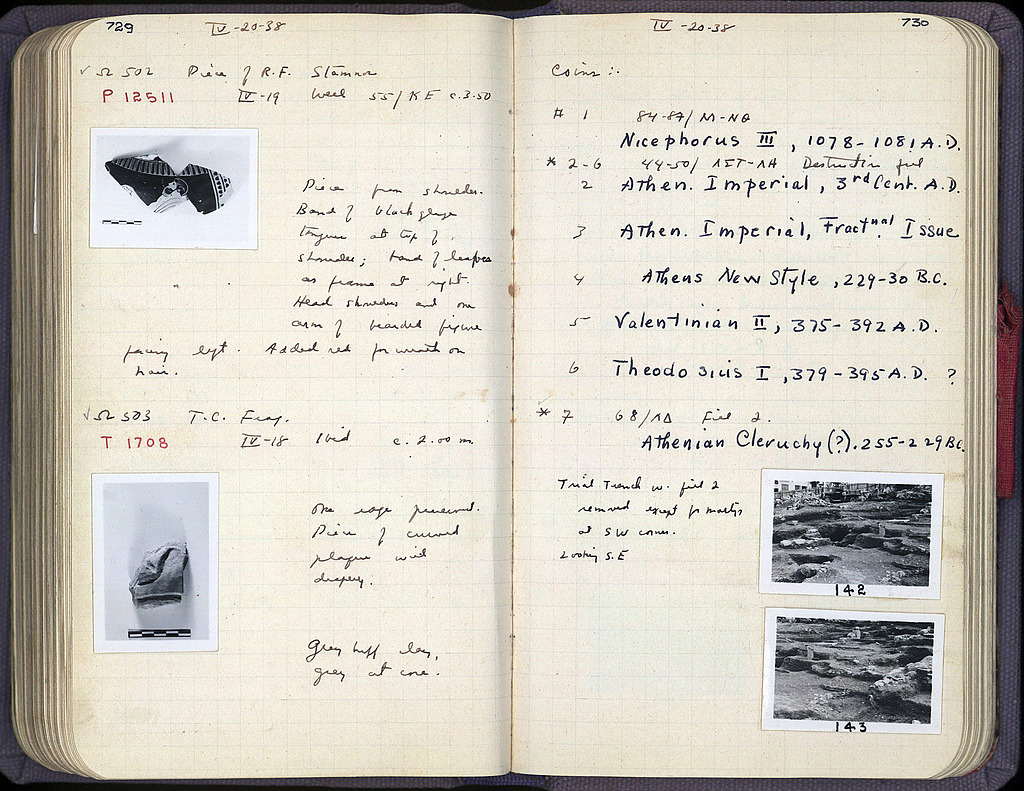 729
IV -20-38
✓ Ω 502 Piece of R.F. Stamnos
P 12511 IV-19 Well 55/ΚΕ c. 3.50
Piece from shoulder.
Band of black glaze
tongues at top of
shoulder; band of leaves
as frame at right.
Head shoulder and one
arm of bearded figure
facing left. Added red for wreath on
hair.
✓ Ω 503 T.C. Frag.
T 1708 IV-18 Ibid c. 2.00 m.
One edge preserved.
Piece of curved
plaque with
drapery.
Grey buff clay,
grey at core.
730
IV -20-38
Coins :.
# 1 84-87/ Μ-ΝΘ
Nicephorus III, 1078-1081 A.D.
* 2-6 44-50/ ΛΣΤ-ΛΗ Destruction fill
2 Athen. Imperial, 3rd Cent. A.D.
3 Athen. Imperial, Fractnal. Issue
4 Athens New Style, 229-30 B.C.
5 Valentinian II, 375-392 A.D.
6 Theodosius I, 379-395 A.D. ?
* 7 68/ΛΔ Fill 2.
Athenian Cleruchy (?). 255-229 B.C.
Trial Trench w. fill 2
removed except for
at SW corner.
Looking S.E
142
143